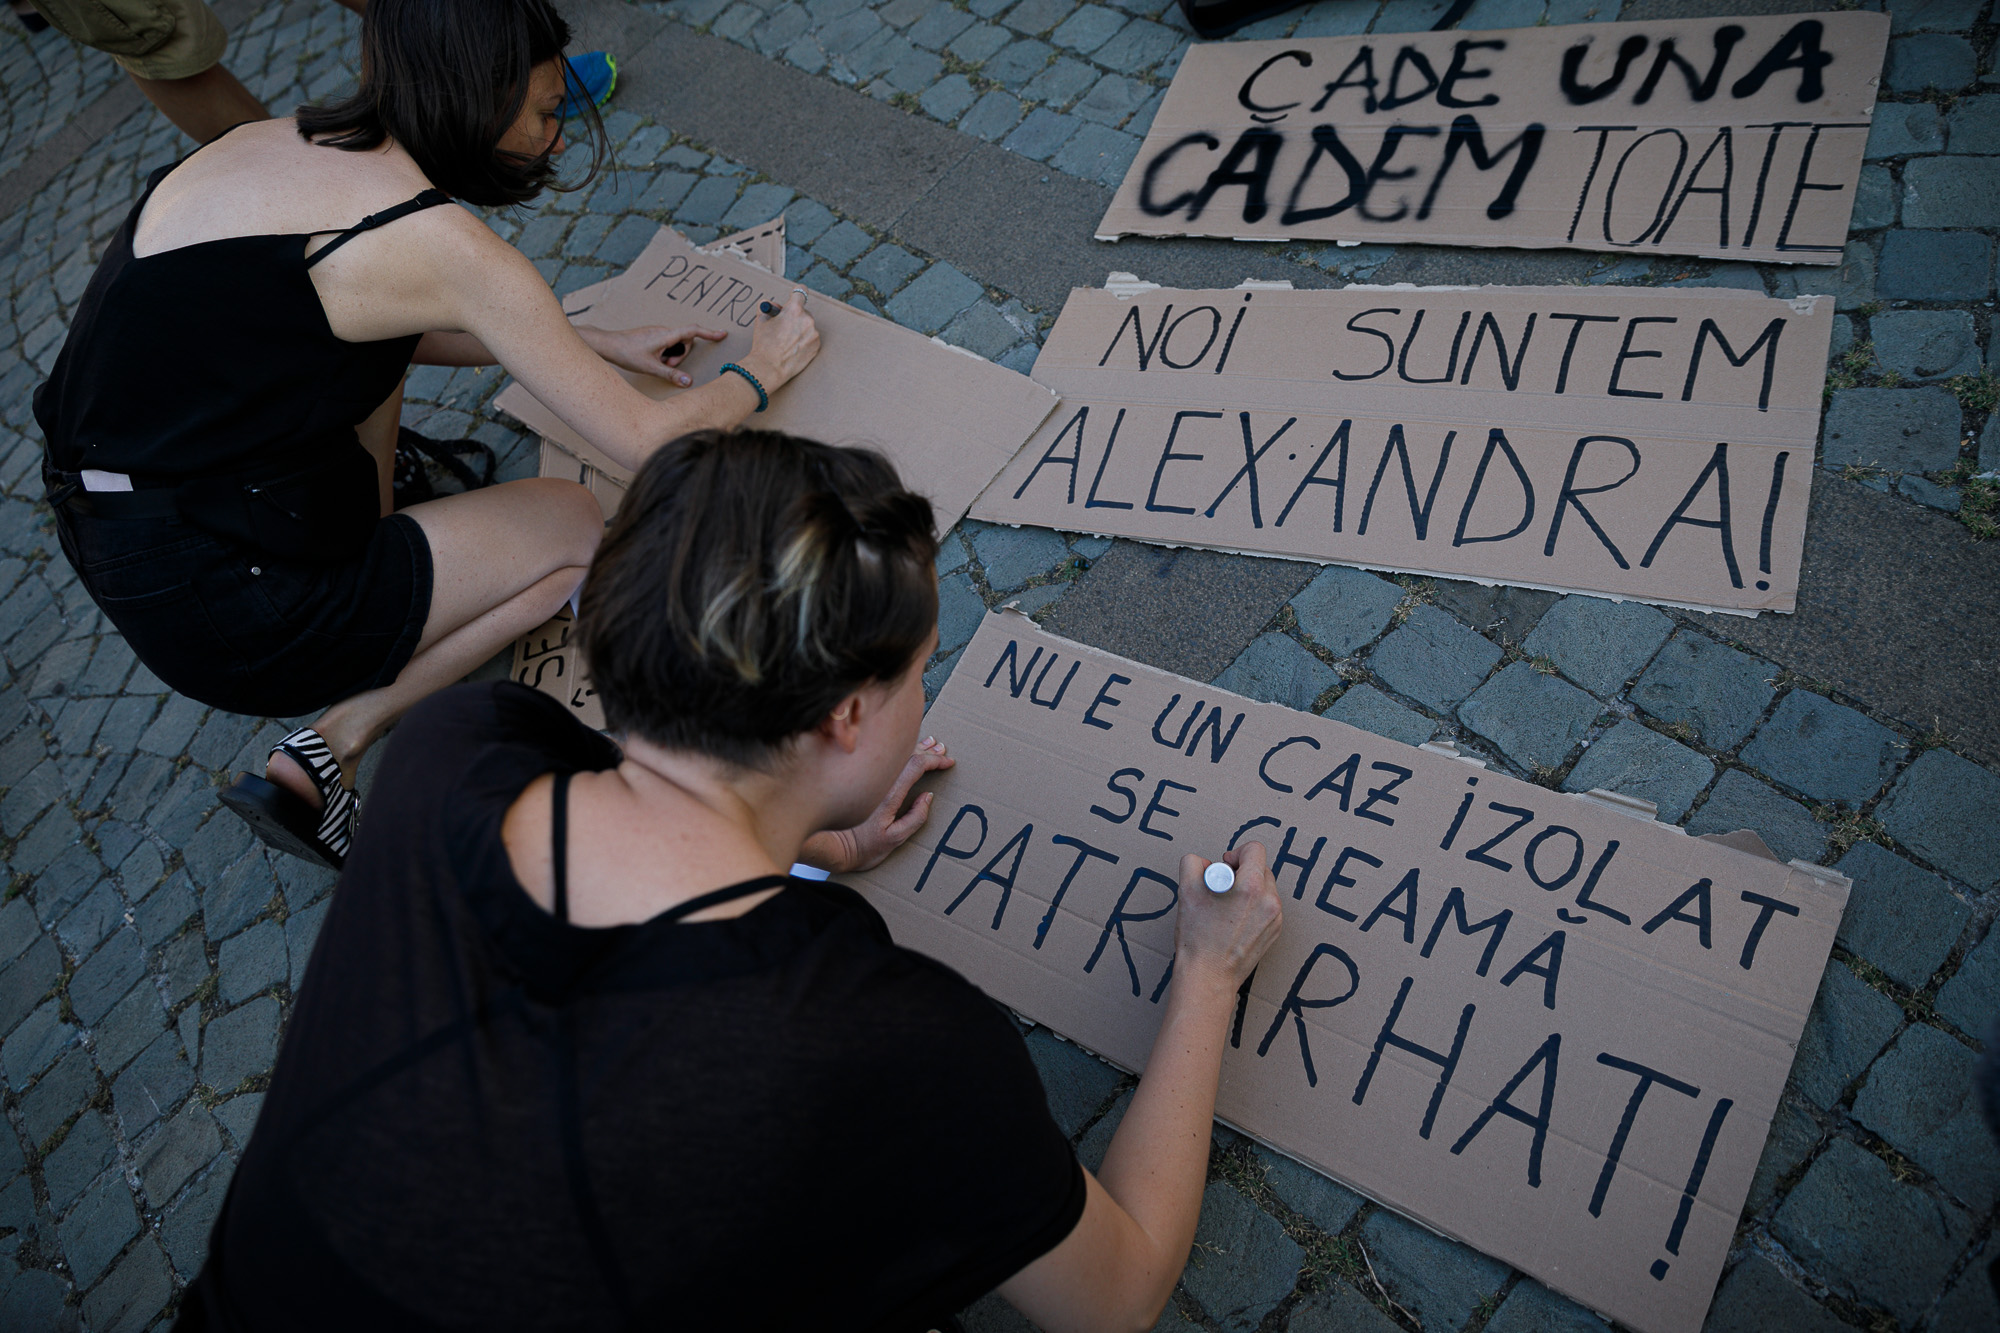 CADE UNA
CĂDEM TOATE
NOI SUNTEM
ALEXANDRA!
PENTRU
NU E UN CAZ IZOLAT
SE CHEAMĂ
PATRIARHAT!